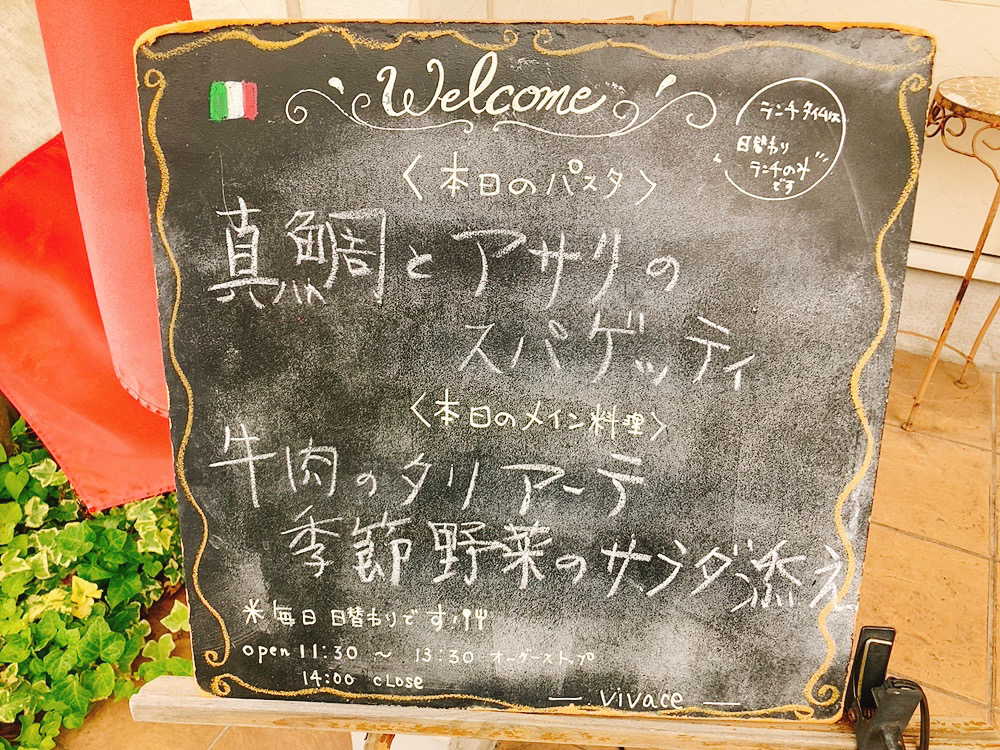 Welcome
ランチタイムは
日替わり
ランチのみ
です
〈本日のパスタ〉
真鯛とアサリの
スパゲッティ
〈本日のメイン料理〉
牛肉のタリアーテ
季節野菜のサラダ添え
※毎日日替わりです
open 11:30 〜 13:30 オーダーストップ
14:00 CLOSE
― vivace ―